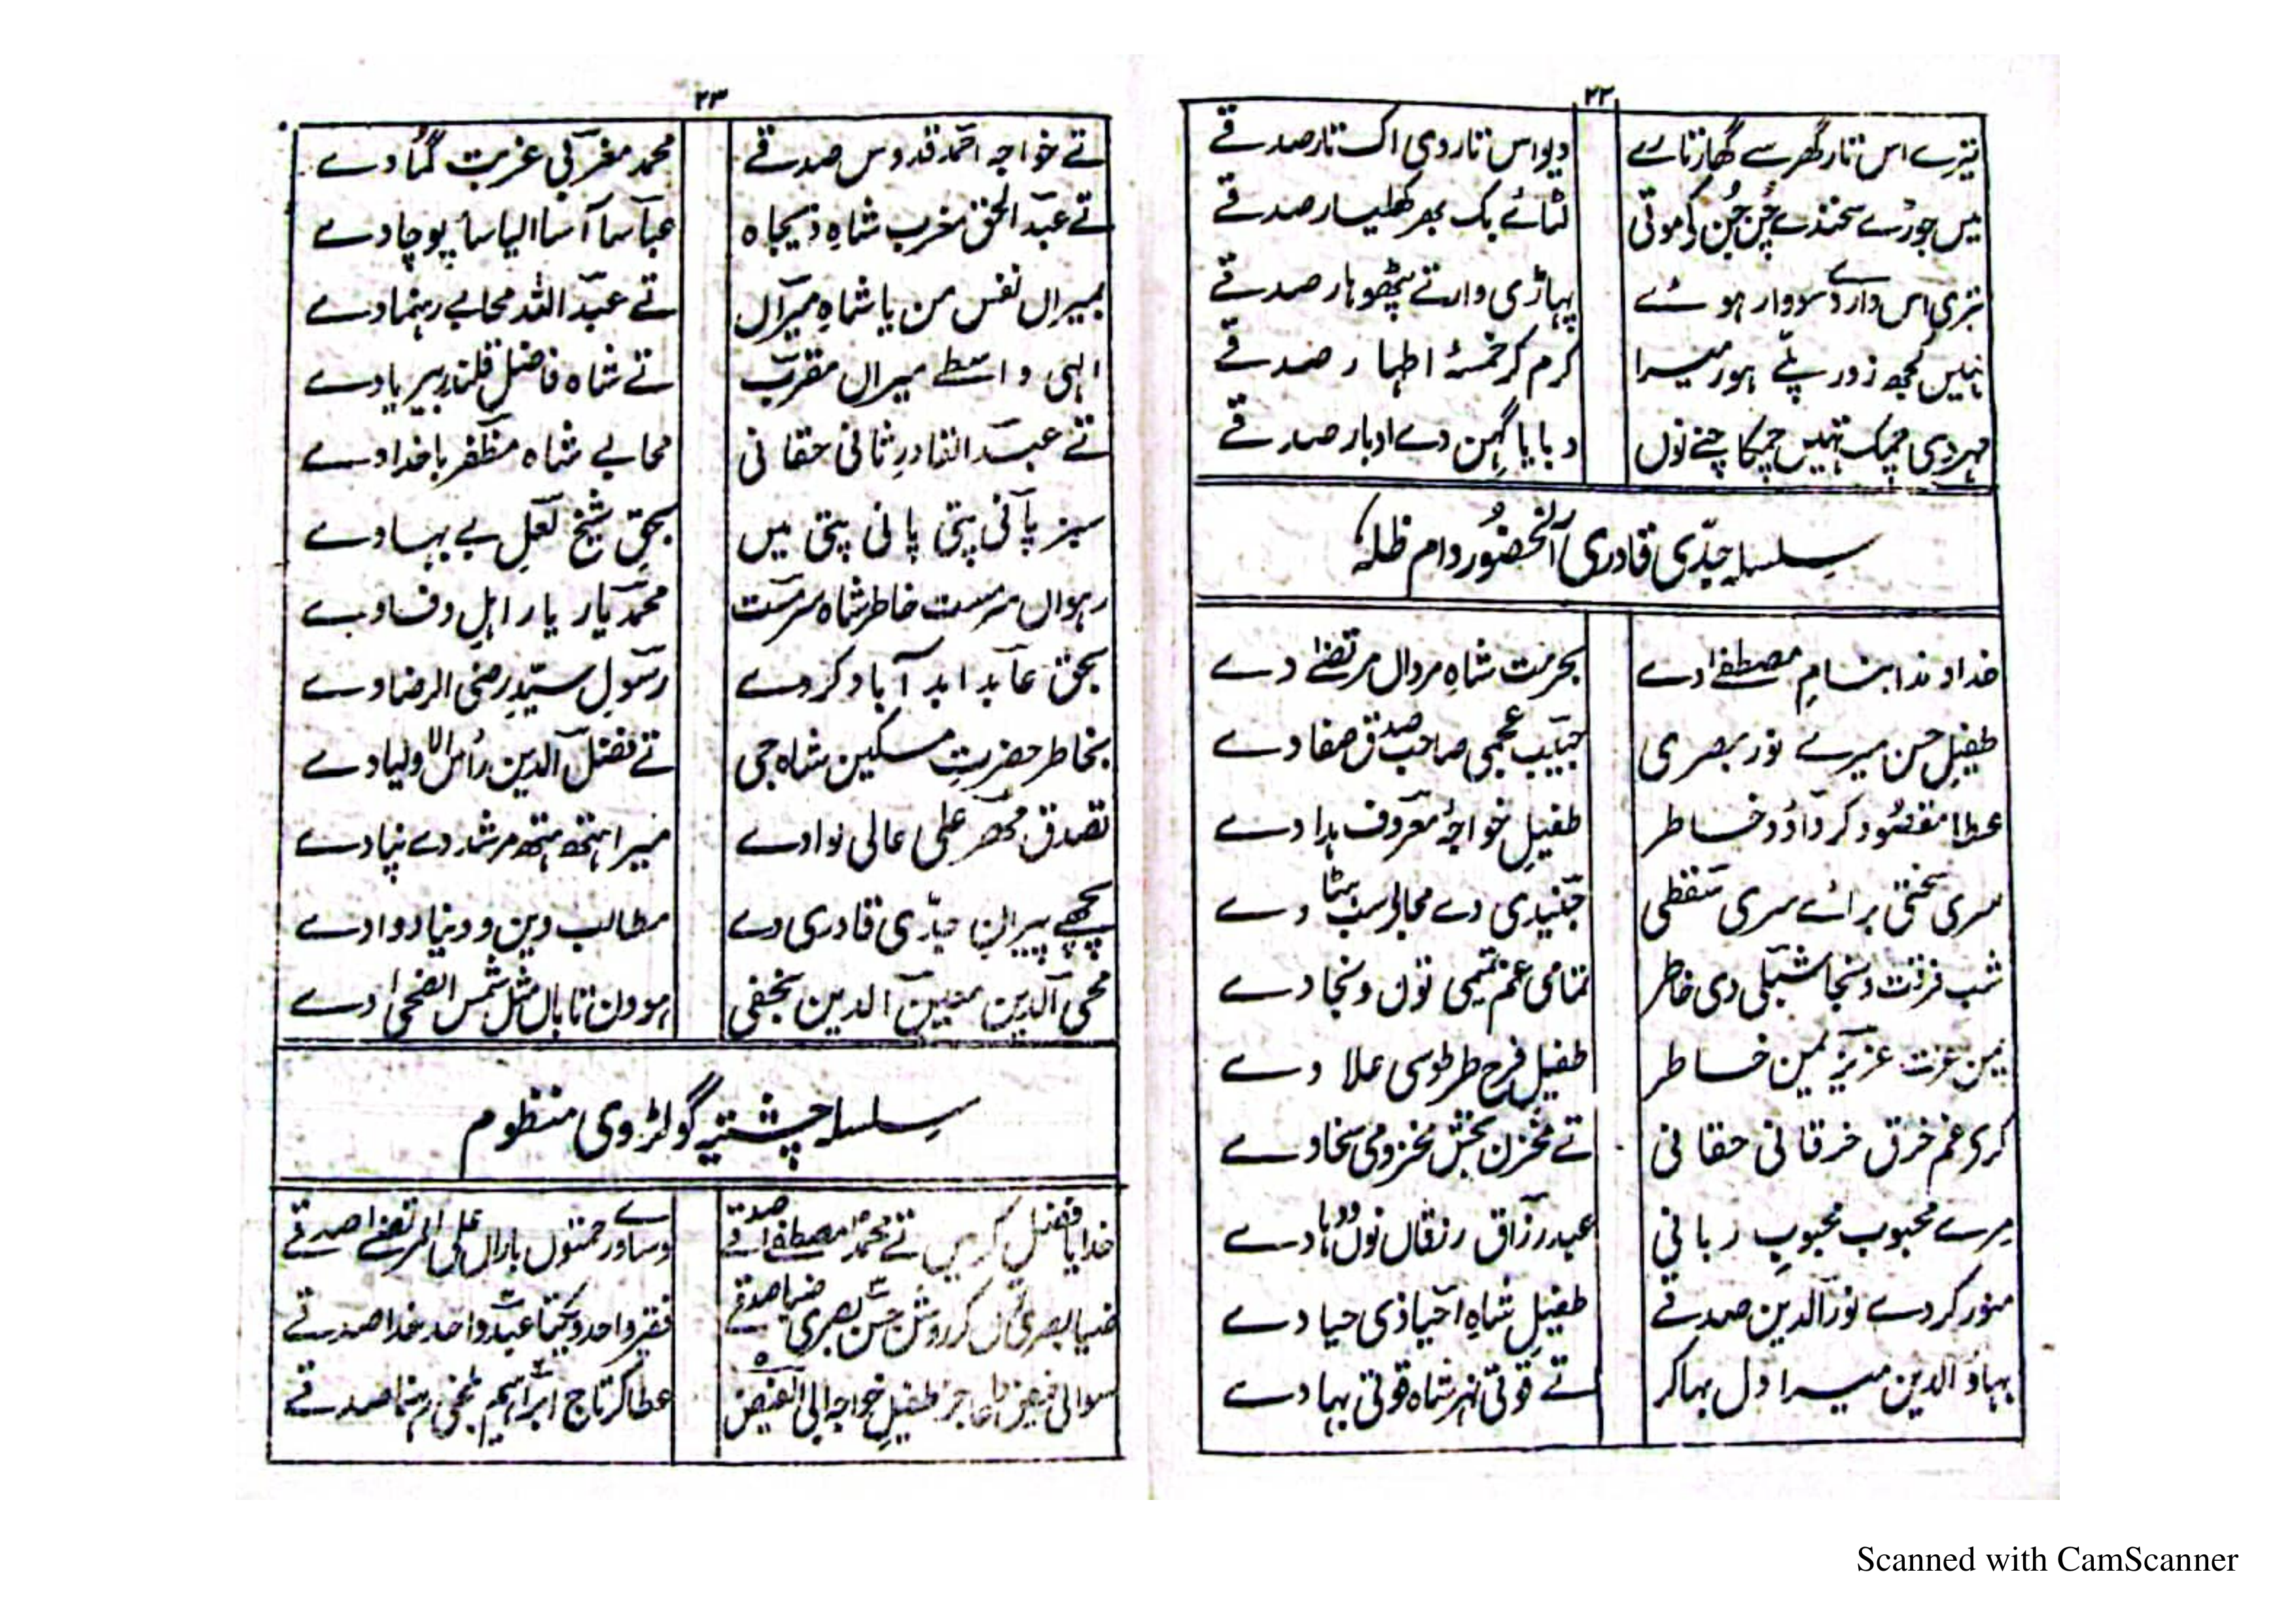 ۲۲
تیرے اس تار گھر سے گھار تارے دیواس تار دی اک تار صدقے
میں جوڑے سخنڈے چُن چُن کے موتی لٹائے بک بھر کھلیار صدقے
تیری اس وار دے سووار ہوئے پہاڑی وار تے پٹھوہار صدقے
ناہیں کجھ زور پلّے ہور میرا کرم کر خمسۂ اطہار صدقے
مہر دی چمک تہیں چمکا چنے نوں دبایا گہن دے ادبار صدقے
سلسلہ جدّی قادری آنحضُور دام ظلہٗ
خداوندا بنامِ مصطفےٰ دے بحرمت شاہِ مرداں مرتضےٰ دے
طفیلِ حسن میرے نور بصری حبیب عجمی صاحب صدق صفا دے
عطا مقصُود کر داؤد خاطر طفیلِ خواجۂ معروف ہدا دے
سری سختی برائے سری سقطی جنیدی دے مجالس دے
شب فرقت ونجا شبلی دی خاطر تمامی غم تمیمی نوں ونجا دے
یمن عزت عزیز یمن خاطر طفیل فرح طرطوسی علا دے
کری غم خرق خرقانی حقانی تے مخزن بخش مخزومی سخا دے
مرے محبوب محبوبِ ربانی عبدرزاق رزقاں نوں ودہا دے
منور کردے نورالدین صدقے طفیلِ شاہِ احیا ذی حیا دے
بہاؤالدین میرا دل بہا کر تے قوتی نہر شاہ قوتی بہا دے
۲۳
تے خواجہ احمد قدوس صدقے محمد مغربی غربت گما دے
تے عبد الحق مغرب شاہِ ذیجاہ عباسا آسا الیاسا پوچا دے
بمیراں نفس من یا شاہِ میراں تے عبد اللہ محابے رہنما دے
الہی واسطے میراں مقرب تے شاہ فاضل قلندر بیریا دے
تے عبد القادرِ ثانی حقانی محابے شاہ مظفر باخدا دے
سبز پانی پتی پانی پتی میں بحقِ شیخ لعلِ بے بہا دے
رہواں سرمست خاطر شاہ سرمست محمد یار یار اہلِ وفا دے
بحق عابد ابد آباد کردے رسولِ سیّدِ رضی الرضا دے
بخاطر حضرتِ مسکین شاہ جی تے فضل الدین راس الاولیا دے
تصدق مہر علی عالی نوا دے میرا ہتھ ہتھ مرشد دے پنا دے
پچھے پیراں جدّی قادری دے مطالب دین و دنیا دوا دے
محی الدین معین الدین نجفی ہوون تاباں مثل شمس الضحیٰ دے
سلسلہ چشتیہ گولڑوی منظوم
خدایا فضل کریں تے محمد مصطفےٰ صدقے وساور حمتوں باراں علی المرتضےٰ صدقے
ضیا بصری نوں کر روشن حسن بصری ضیا صدقے فقیر واحد و یکتا عبد واحد خدا صدقے
سوالی فیض دا عاجز طفیلِ خواجہ ابی الفیض عطا کر تاج ابراہیم بلخی رہنما صدقے
Scanned with CamScanner